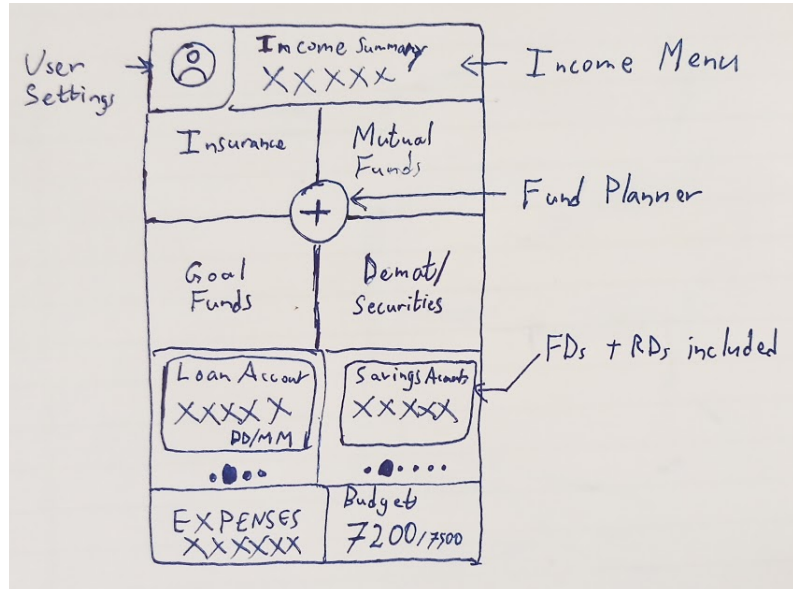 User
Settings
Income Summary
XXXXX
Income Menu
Insurance
Mutual
Funds
+
Fund Planner
Goal
Funds
Demat/
Securities
FDs + RDs included
Loan Account
XXXXX
DD/MM
Savings Accounts
XXXXX
EXPENSES
XXXXXX
Budget
7200/7500